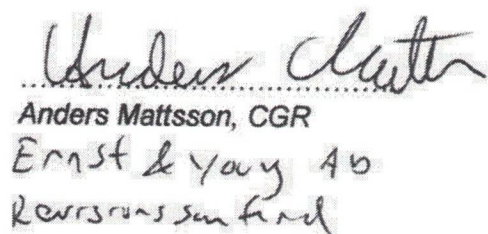 Anders Mattsson
Anders Mattsson, CGR
Ernst & Young Ab
Revisionssamfund